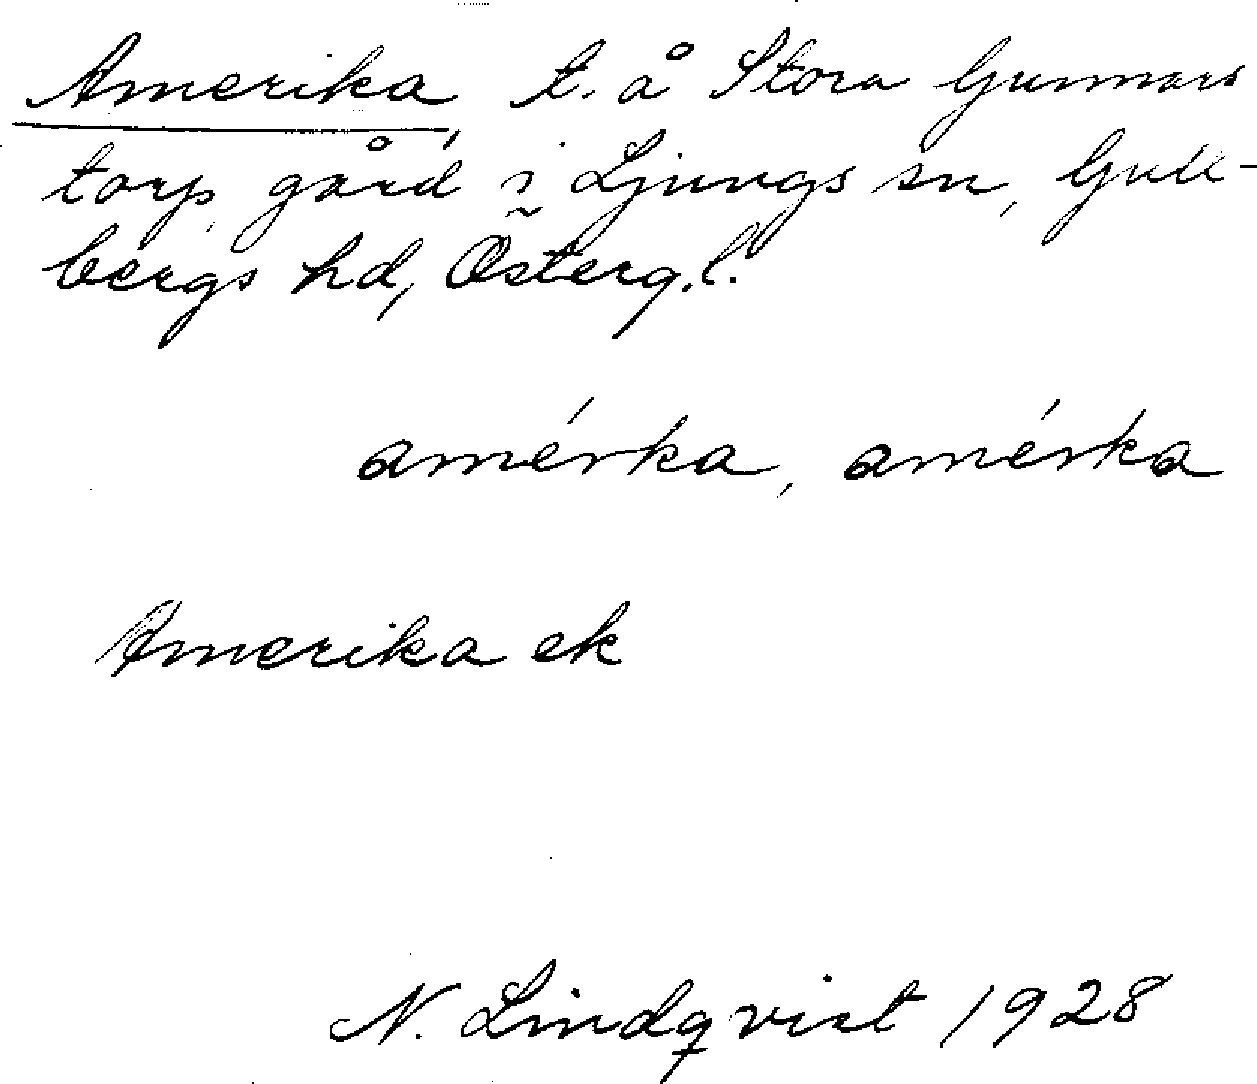 Amerika, t. å Stora Gunnars
torp, gård i Ljungs sn, Gull-
bergs hd, Österg.l.
amérka, amérka
Amerika ek
N. Lindqvist 1928